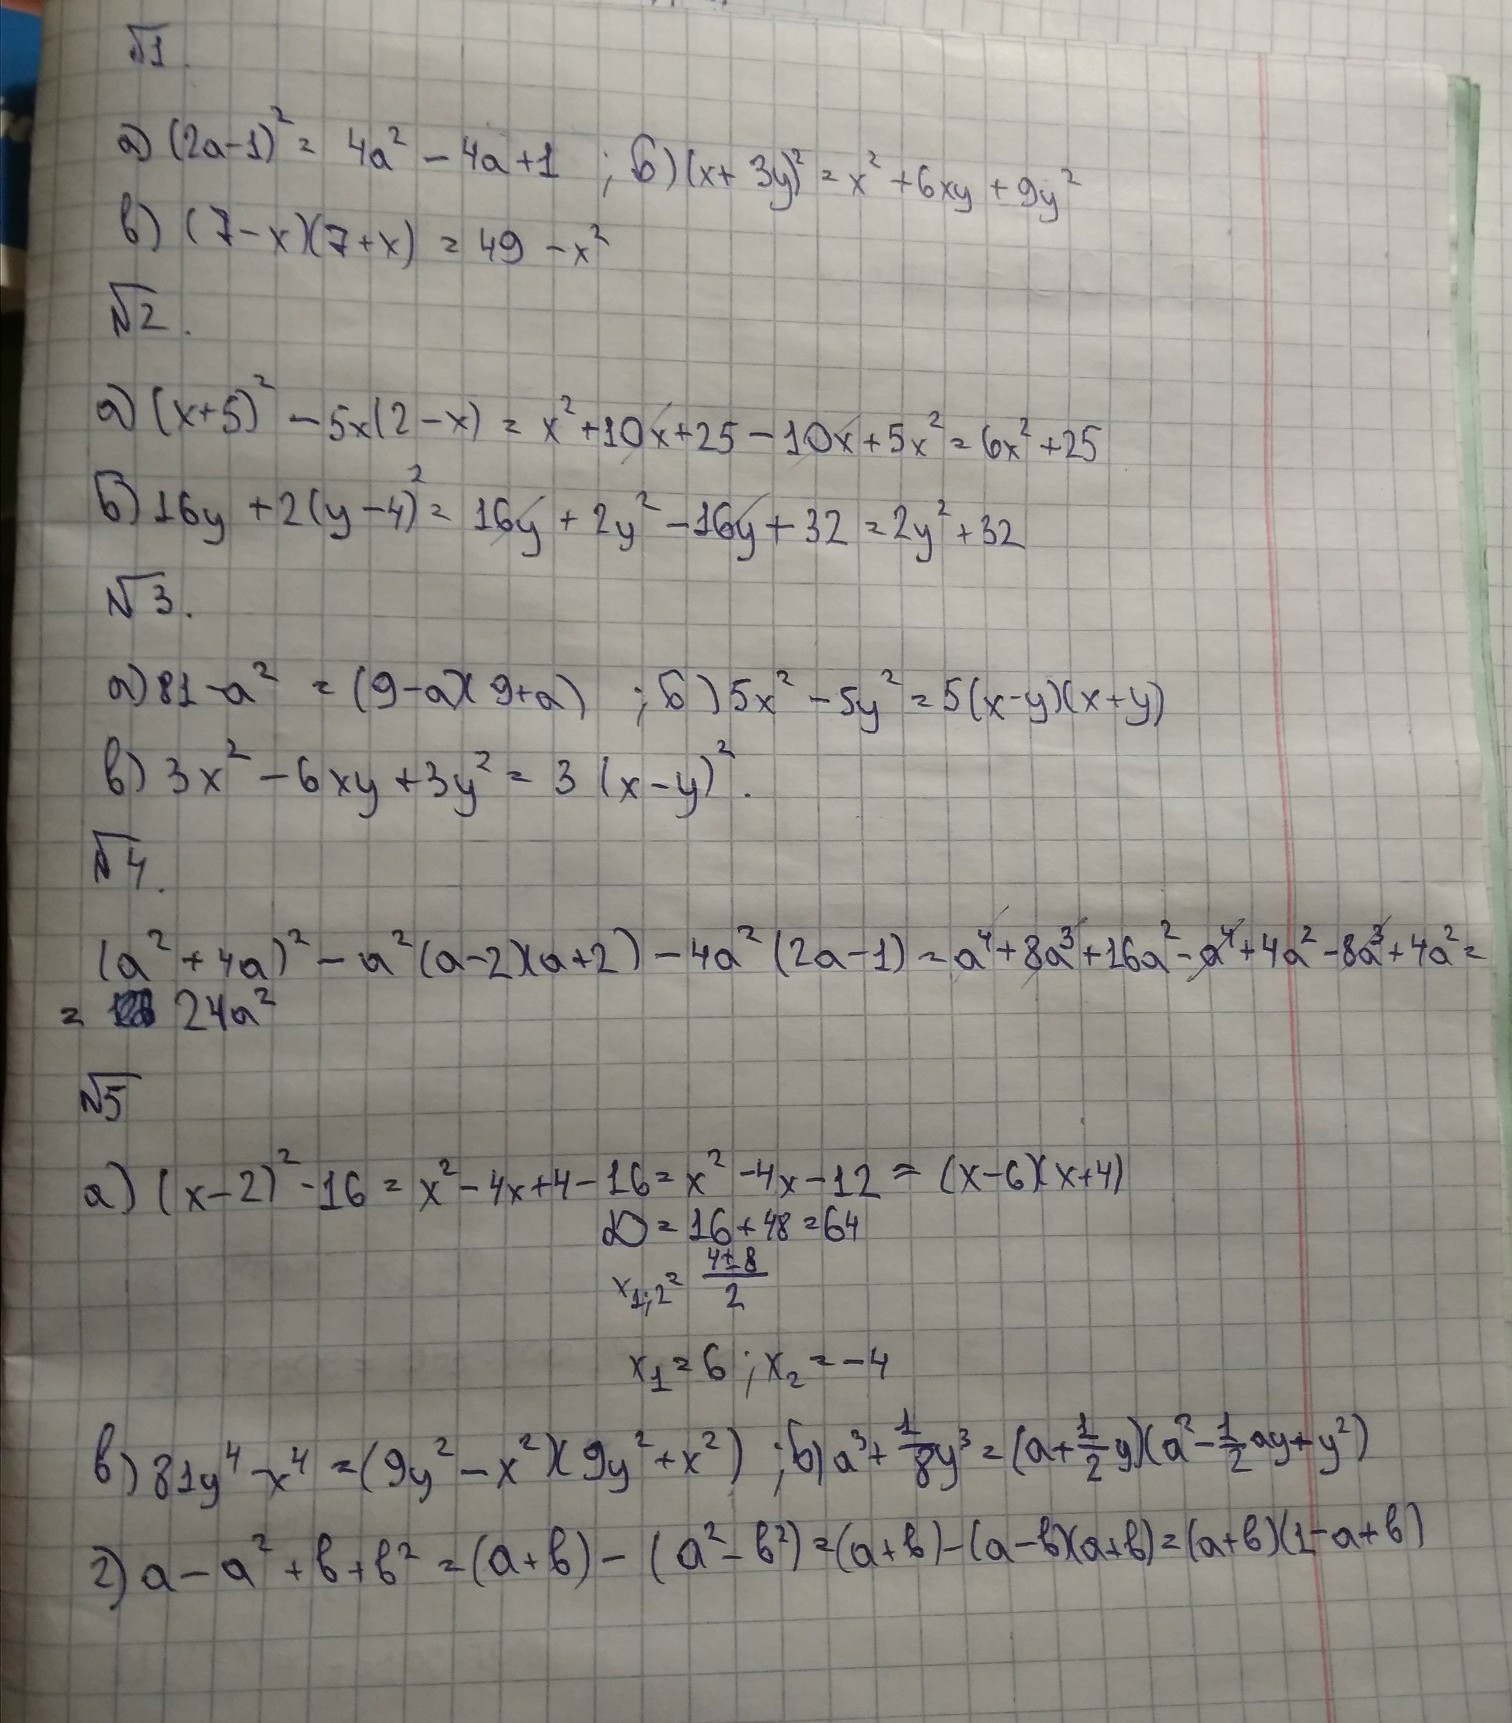 №1.
а) (2a-1)² = 4a² - 4a + 1 ; б) (x + 3y)² = x² + 6xy + 9y²
в) (7-x)(7+x) = 49 - x²
№2.
а) (x+5)² - 5x(2-x) = x² + 10x + 25 - 10x + 5x² = 6x² + 25
б) 16y + 2(y-4)² = 16y + 2y² - 16y + 32 = 2y² + 32
№3.
а) 81 - a² = (9-a)(9+a) ; б) 5x² - 5y² = 5(x-y)(x+y)
в) 3x² - 6xy + 3y² = 3(x-y)².
№4.
(a² + 4a)² - a²(a-2)(a+2) - 4a²(2a-1) = a⁴ + 8a³ + 16a² - a⁴ + 4a² - 8a³ + 4a² =
= 24a²
№5
а) (x-2)² - 16 = x² - 4x + 4 - 16 = x² - 4x - 12 = (x-6)(x+4)
D = 16 + 48 = 64
x₁;₂ = (4±8)/2
x₁ = 6 ; x₂ = -4
в) 81y⁴ - x⁴ = (9y² - x²)(9y² + x²) ; б) a³ + 1/8y³ = (a + 1/2y)(a² - 1/2ay + y²)
г) a - a² + b + b² = (a+b) - (a² - b²) = (a+b) - (a-b)(a+b) = (a+b)(1-a+b)